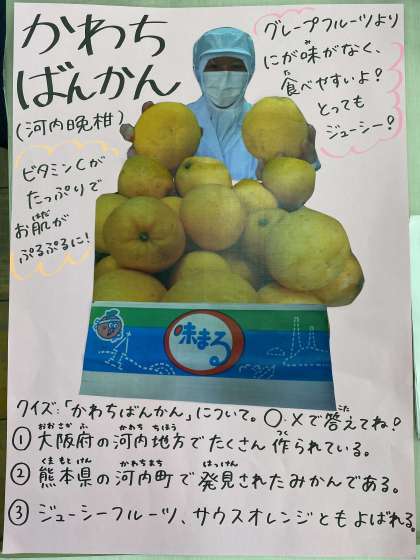 かわち
ばんかん
(河内晩柑)
グレープフルーツより
にが味がなく、
食べやすいよ?
とっても
ジューシー?
ビタミンCが
たっぷりで
お肌が
ぷるぷるに!
味まる
クイズ:「かわちばんかん」について。○、×で答えてね!
① 大阪府の河内地方でたくさん作られている。
② 熊本県の河内町で発見されたみかんである。
③ ジューシーフルーツ、サウスオレンジともよばれる。